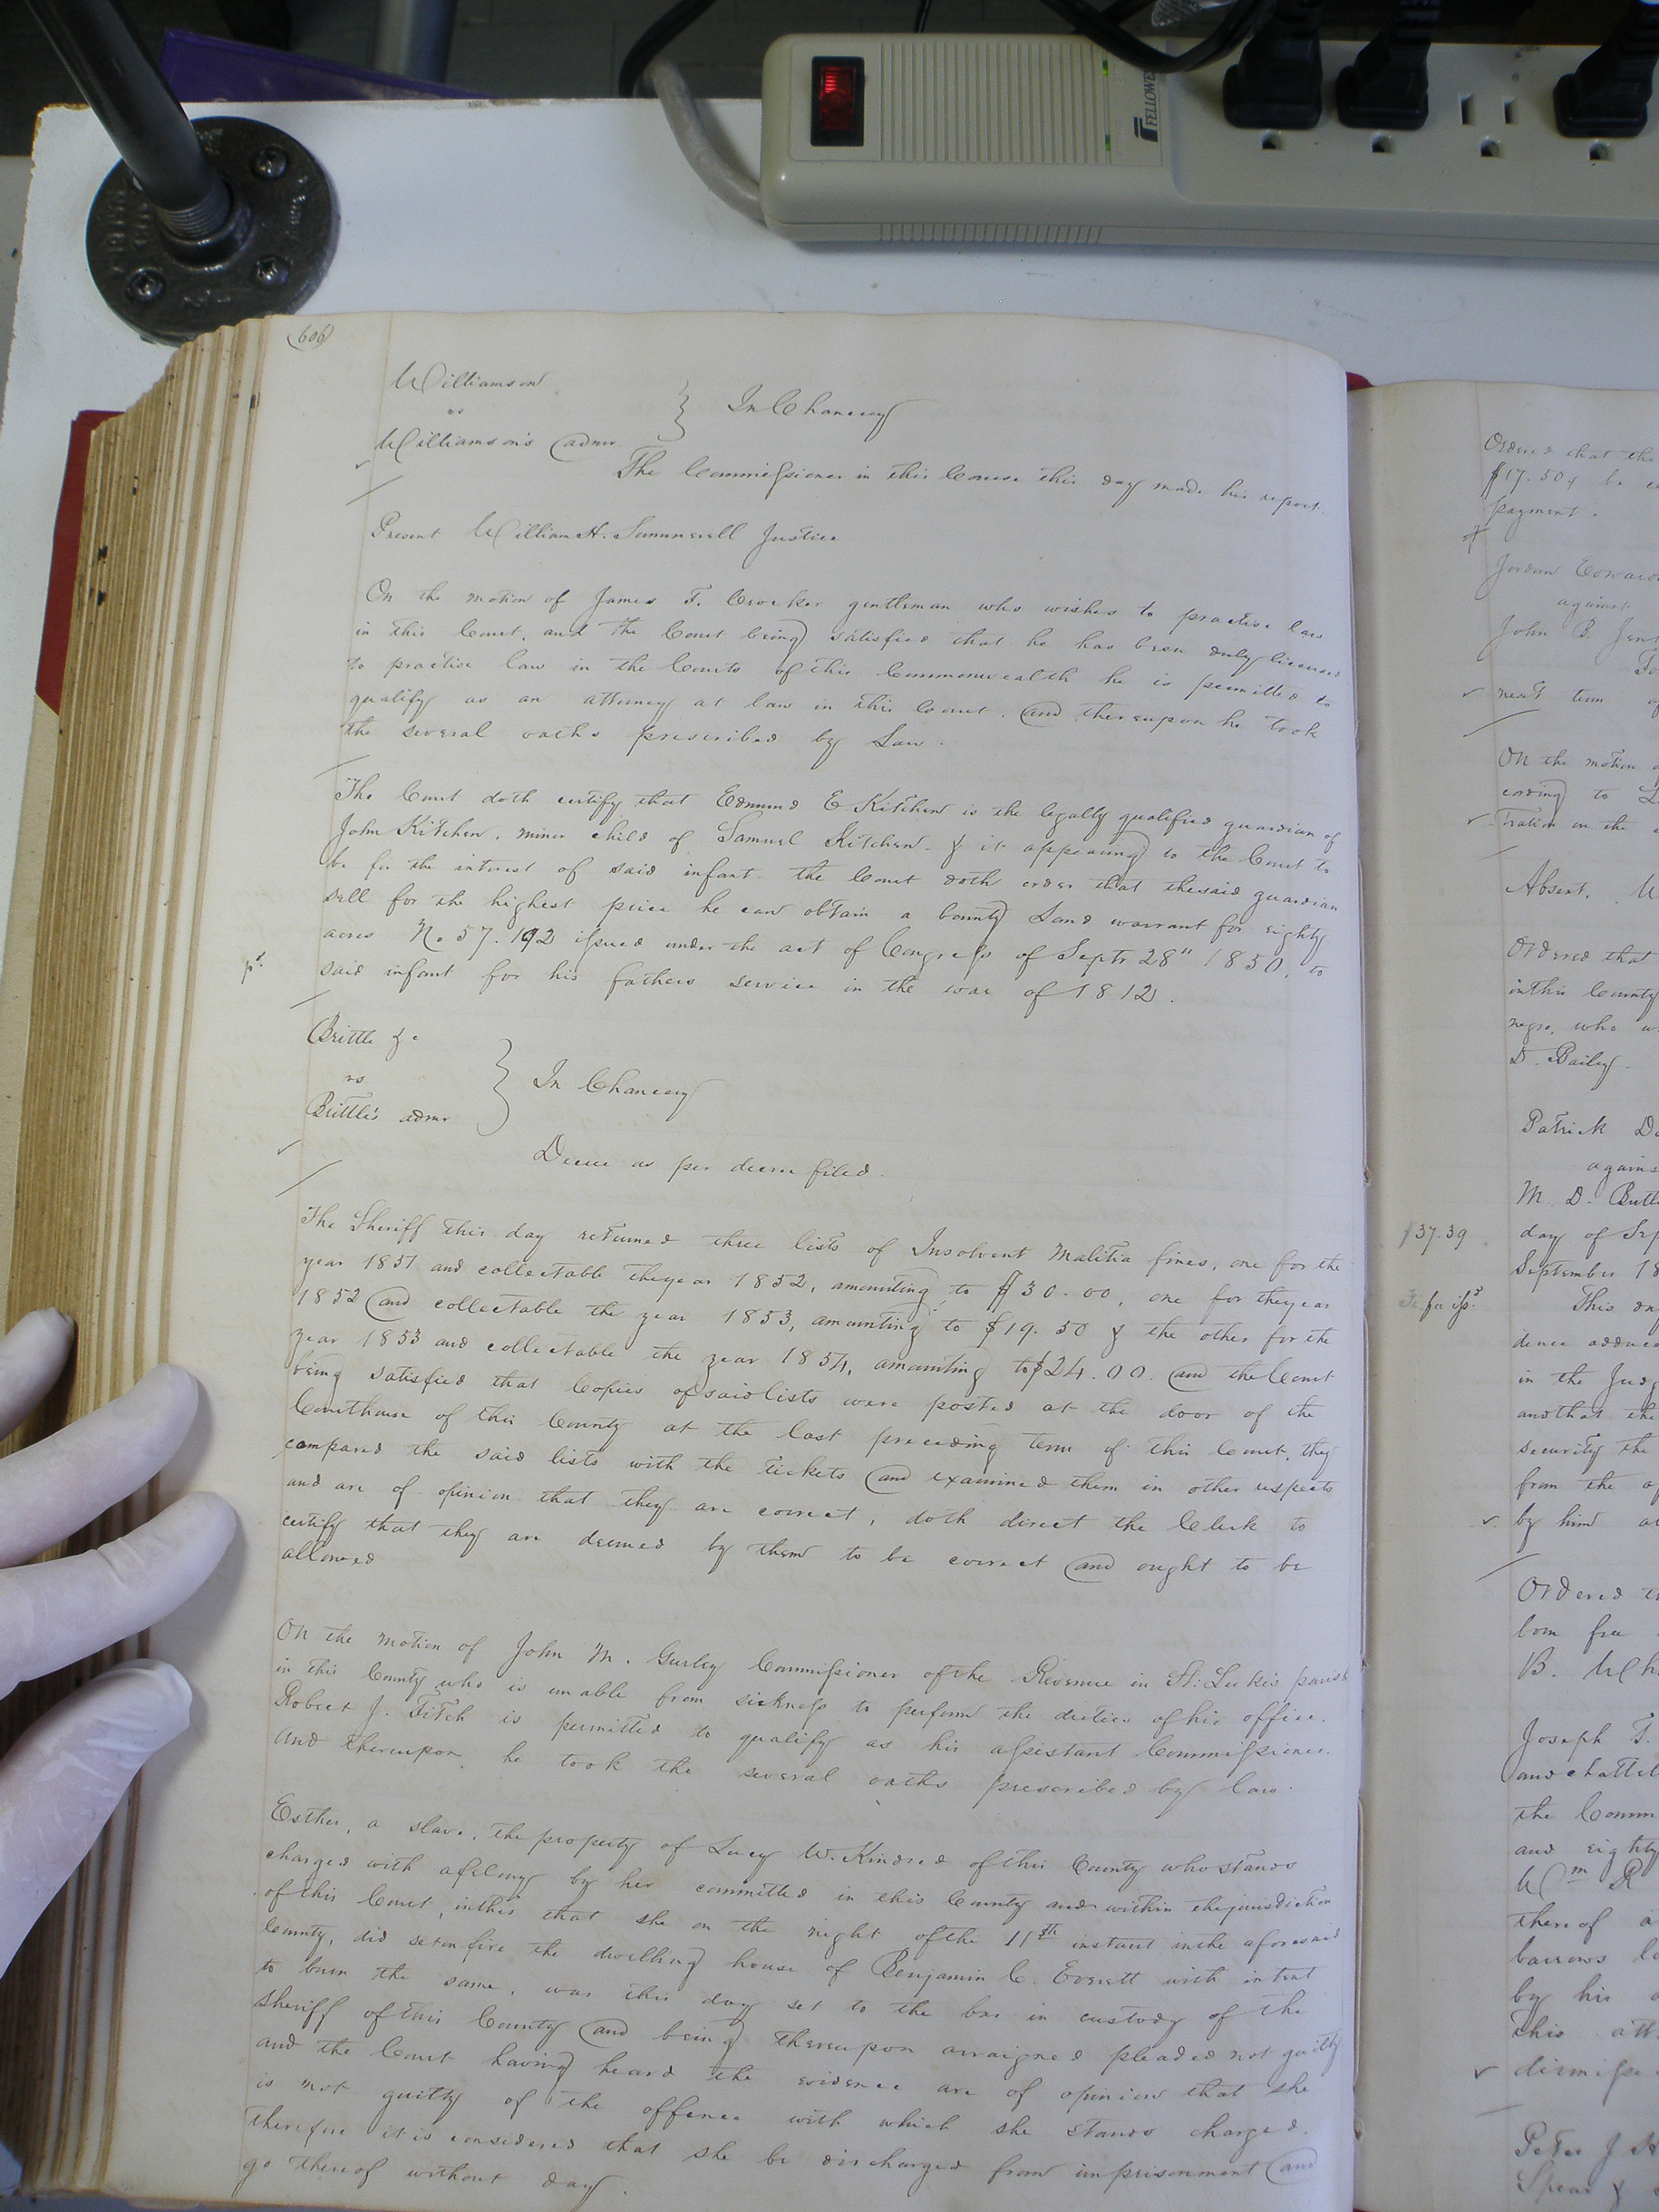 FELLOWE
606
Williamson
vs } In Chancery
Williamson's admr.
The Commissioner in this Cause this day made his report.
Present William H. Summerell Justice
On the motion of James F. Crocker gentleman who wishes to practise law
in this Court, and the Court being satisfied that he has been duly licensed
to practise law in the Courts of this Commonwealth he is permitted to
qualify as an attorney at law in this Court. and thereupon he took
the several oaths prescribed by Law.
The Court doth certify that Edmund E Kitchen is the legally qualified guardian of
John Kitchen, minor child of Samuel Kitchen- & it appearing to the Court to
be for the interest of said infant- the Court doth order that the said guardian
sell for the highest price he can obtain a bounty Land warrant for eighty
acres No. 57.192 issued under the act of Congress of Septr 28" 1850, to
said infant for his fathers service in the war of 1812.
Brittle &c
vs } In Chancery
Brittle's admr
Decree as per decree filed.
The Sheriff this day returned three lists of Insolvent Malitia fines, one for the
year 1851 and collectable the year 1852, amounting to $30.00, one for the year
1852 and collectable the year 1853, amounting to $19.50 & the other for the
year 1853 and collectable the year 1854, amounting to $24.00. and the Court
being satisfied that Copies of said lists were posted at the door of the
Courthouse of this County at the last preceding term of this Court, they
compared the said lists with the tickets and examined them in other respects
and are of opinion that they are correct, doth direct the Clerk to
certify that they are deemed by them to be correct and ought to be
allowed
On the motion of John M. Gurley Commissioner of the Revenue in St: Luke's parish
in this County who is unable from sickness to perform the duties of his office.
Robert J. Fitch is permitted to qualify as his assistant Commissioner.
and thereupon he took the several oaths prescribed by law.
Esther, a slave, the property of Lucy W. Kindred of this County who stands
charged with a felony by her committed in this County and within the jurisdiction
of this Court, in this that she on the night of the 11th instant in the aforesaid
County, did set on fire the dwelling house of Benjamin C. Everett with intent
to burn the same, was this day set to the bar in custody of the
Sheriff of this County and being thereupon arraigned pleaded not guilty
and the Court having heard the evidence are of opinion that she
is not guilty of the offence with which she stands charged.
therefore it is considered that she be discharged from imprisonment and
go thereof without day.
Ordered that the
$17.50
payment.
Jordan Edward
against
John B.
next term
On the motion
cording to
tration on the
Absent.
Ordered that
in this County
negro, who
D. Bailey.
Patrick
against
M. D. Butl
$37.39 day of Sep
September 18
Fi. fa iss.d This da
dence adduce
in the Judg
and that the
security the
from the
by him
Ordered
born free
B.
Joseph T.
and chattel
the Comm
and eighty
Wm R
thereof
barrows
by his
This att
dismisse
Peter J
Spear &